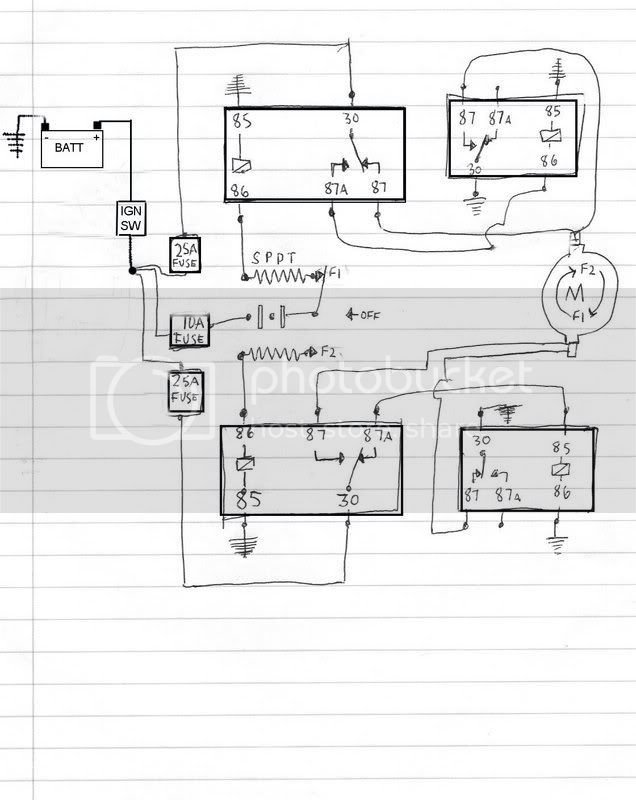 85 30
86 87A 87
87 87A 85
30 86
BATT
- +
IGN
SW
25A
FUSE
SPDT
F1
OFF
10A
FUSE
F2
25A
FUSE
F2
M
F1
86 87 87A
85 30
30 85
87 87A 86
photobucket
host. store. share.